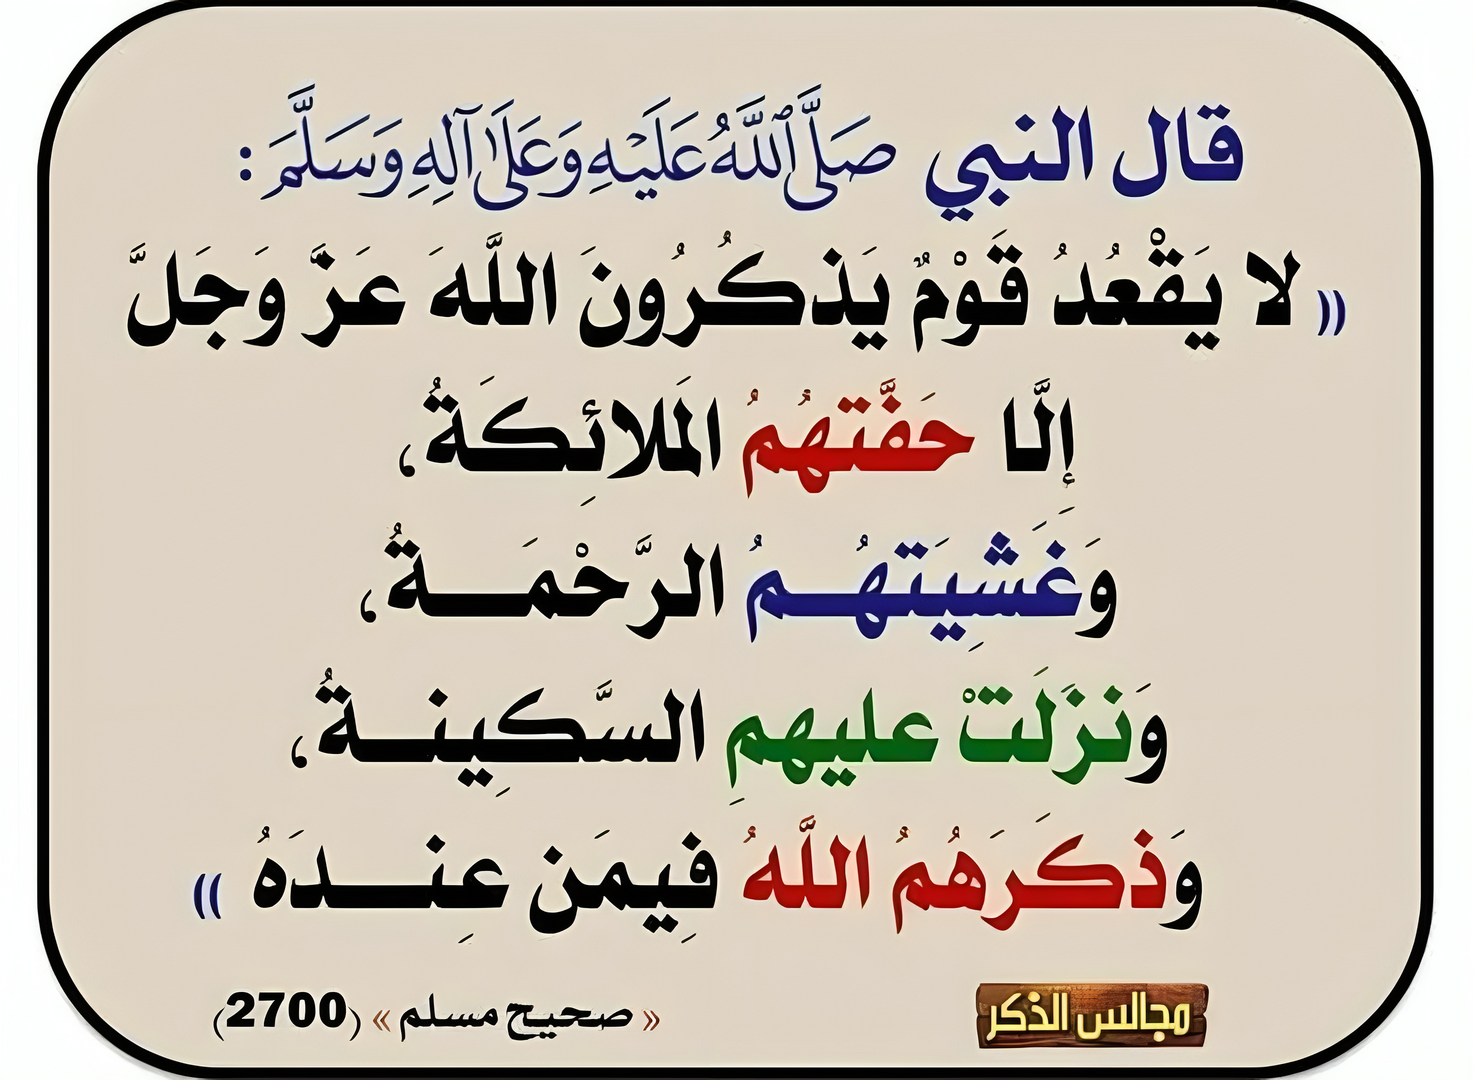 قال النبي صَلَّى اللَّهُ عَلَيْهِ وَعَلَى آلِهِ وَسَلَّمَ :
(( لا يَقْعُدُ قَوْمٌ يَذكُرُونَ اللَّهَ عَزَّ وَجَلَّ
إلَّا حَفَّتهُمُ المَلائِكَةُ،
وَغَشِيَتهُـمُ الرَّحْمَـــةُ،
وَنزَلَتْ عليهمِ السَّكِينـةُ،
وَذكَرَهُمُ اللَّهُ فِيمَن عِنـــدَهُ ))
مجالس الذكر
« صحيح مسلم » (2700)